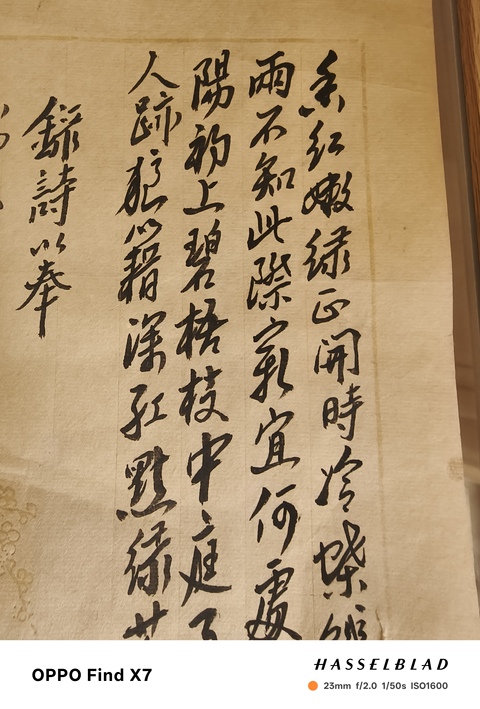 香红嫩绿正開時冷蝶
兩不知此際最宜何處
陽初上碧梧枝中庭
人跡狼藉深紅點綠苔
録詩以奉
OPPO Find X7
HASSELBLAD
23mm f/2.0 1/50s ISO1600